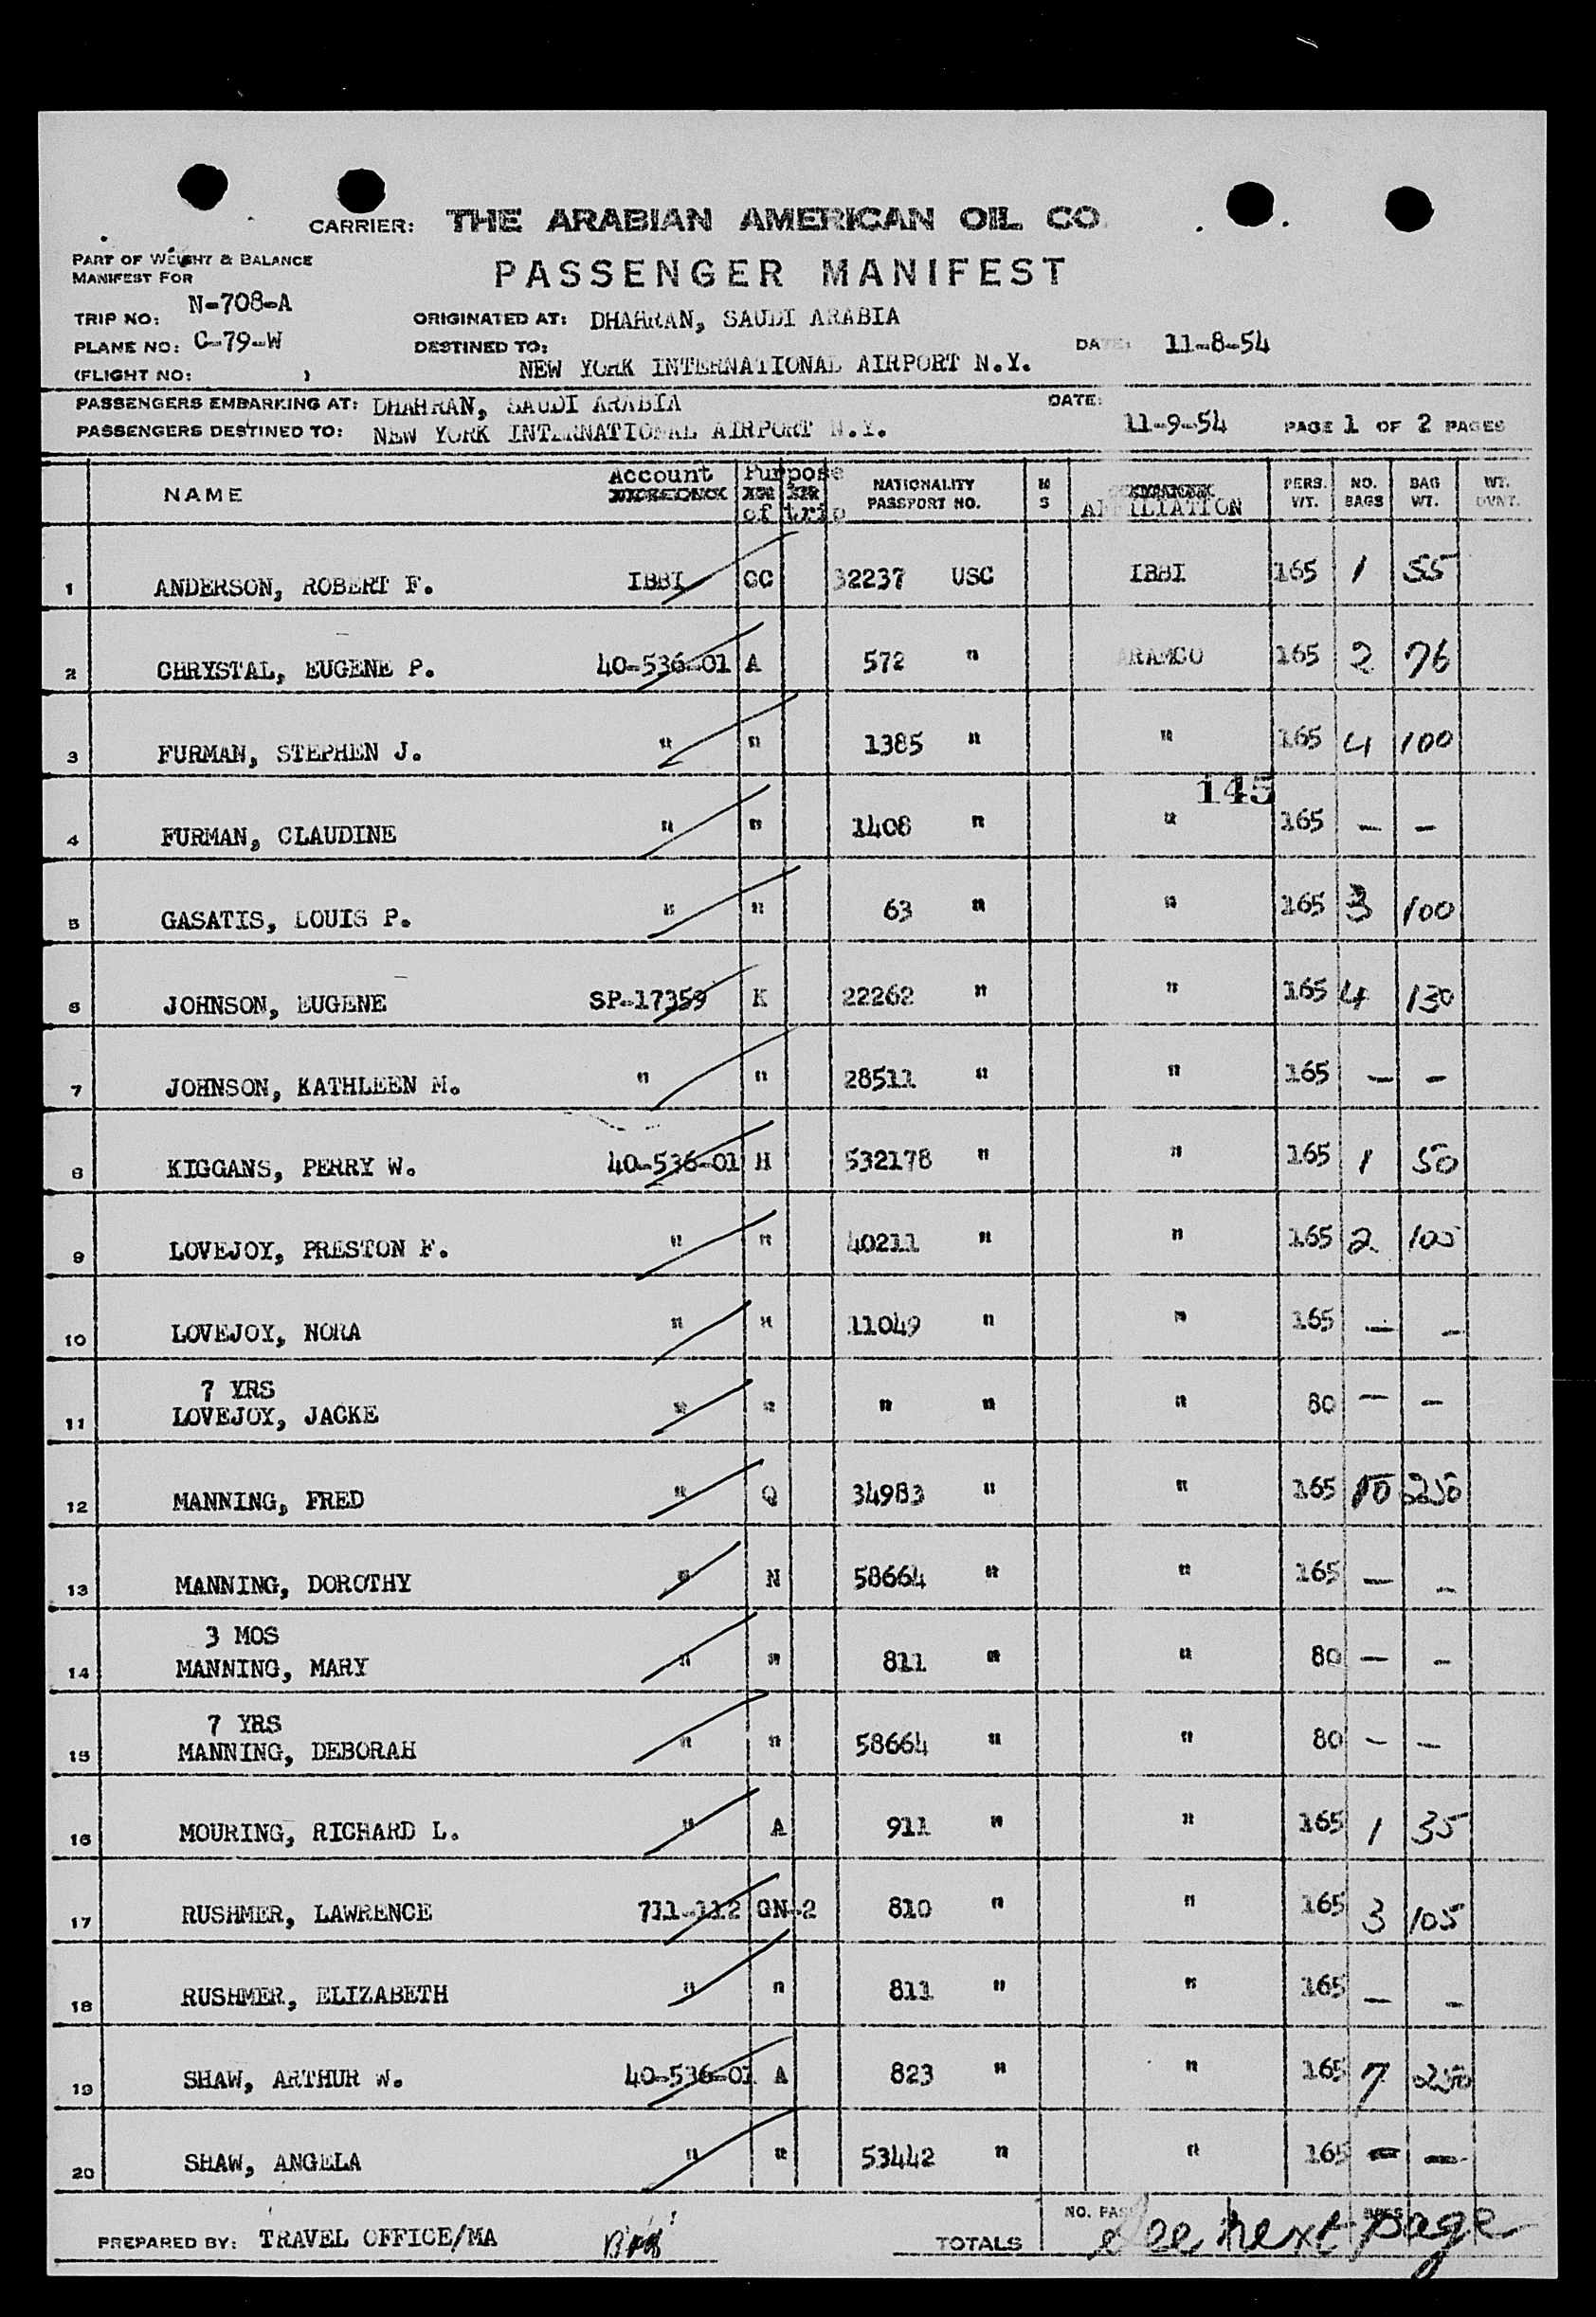 CARRIER: THE ARABIAN AMERICAN OIL CO
PART OF WEIGHT & BALANCE
MANIFEST FOR
PASSENGER MANIFEST
TRIP NO: N-708-A
ORIGINATED AT: DHAHRAN, SAUDI ARABIA
PLANE NO: C-79-W
DESTINED TO: NEW YORK INTERNATIONAL AIRPORT N.Y.
DATE: 11-8-54
(FLIGHT NO: )
PASSENGERS EMBARKING AT: DHAHRAN, SAUDI ARABIA
DATE: 11-9-54
PASSENGERS DESTINED TO: NEW YORK INTERNATIONAL AIRPORT N.Y.
PAGE 1 OF 2 PAGES
NAME Account Purpose of trip NATIONALITY PASSPORT NO. M S AFFILIATION PERS. WT. NO. BAGS BAG WT. WT.
1 ANDERSON, ROBERT F. IBBI GC 32237 USC IBBI 165 1 55
2 CHRYSTAL, EUGENE P. 40-536-01 A 572 " ARAMCO 165 2 76
3 FURMAN, STEPHEN J. " " 1385 " " 165 4 100
145
4 FURMAN, CLAUDINE " " 1408 " " 165 — —
5 GASATIS, LOUIS P. " " 63 " " 165 3 100
6 JOHNSON, EUGENE SP-17359 K 22262 " " 165 4 130
7 JOHNSON, KATHLEEN M. " " 28511 " " 165 — —
8 KIGGANS, PERRY W. 40-536-01 H 532178 " " 165 1 50
9 LOVEJOY, PRESTON F. " " 40211 " " 165 2 105
10 LOVEJOY, NORA " " 11049 " " 165 — —
7 YRS
11 LOVEJOY, JACKE " " " " " 80 — —
12 MANNING, FRED " Q 34983 " " 165 10 250
13 MANNING, DOROTHY " N 58664 " " 165 — —
3 MOS
14 MANNING, MARY " " 811 " " 80 — —
7 YRS
15 MANNING, DEBORAH " " 58664 " " 80 — —
16 MOURING, RICHARD L. " A 911 " " 165 1 35
17 RUSHMER, LAWRENCE 711-112 GN-2 810 " " 165 3 105
18 RUSHMER, ELIZABETH " " 811 " " 165 — —
19 SHAW, ARTHUR W. 40-536-01 A 823 " " 165 7 250
20 SHAW, ANGELA " " 53442 " " 165 — —
PREPARED BY: TRAVEL OFFICE/MA
TOTALS NO. PAS
See next page